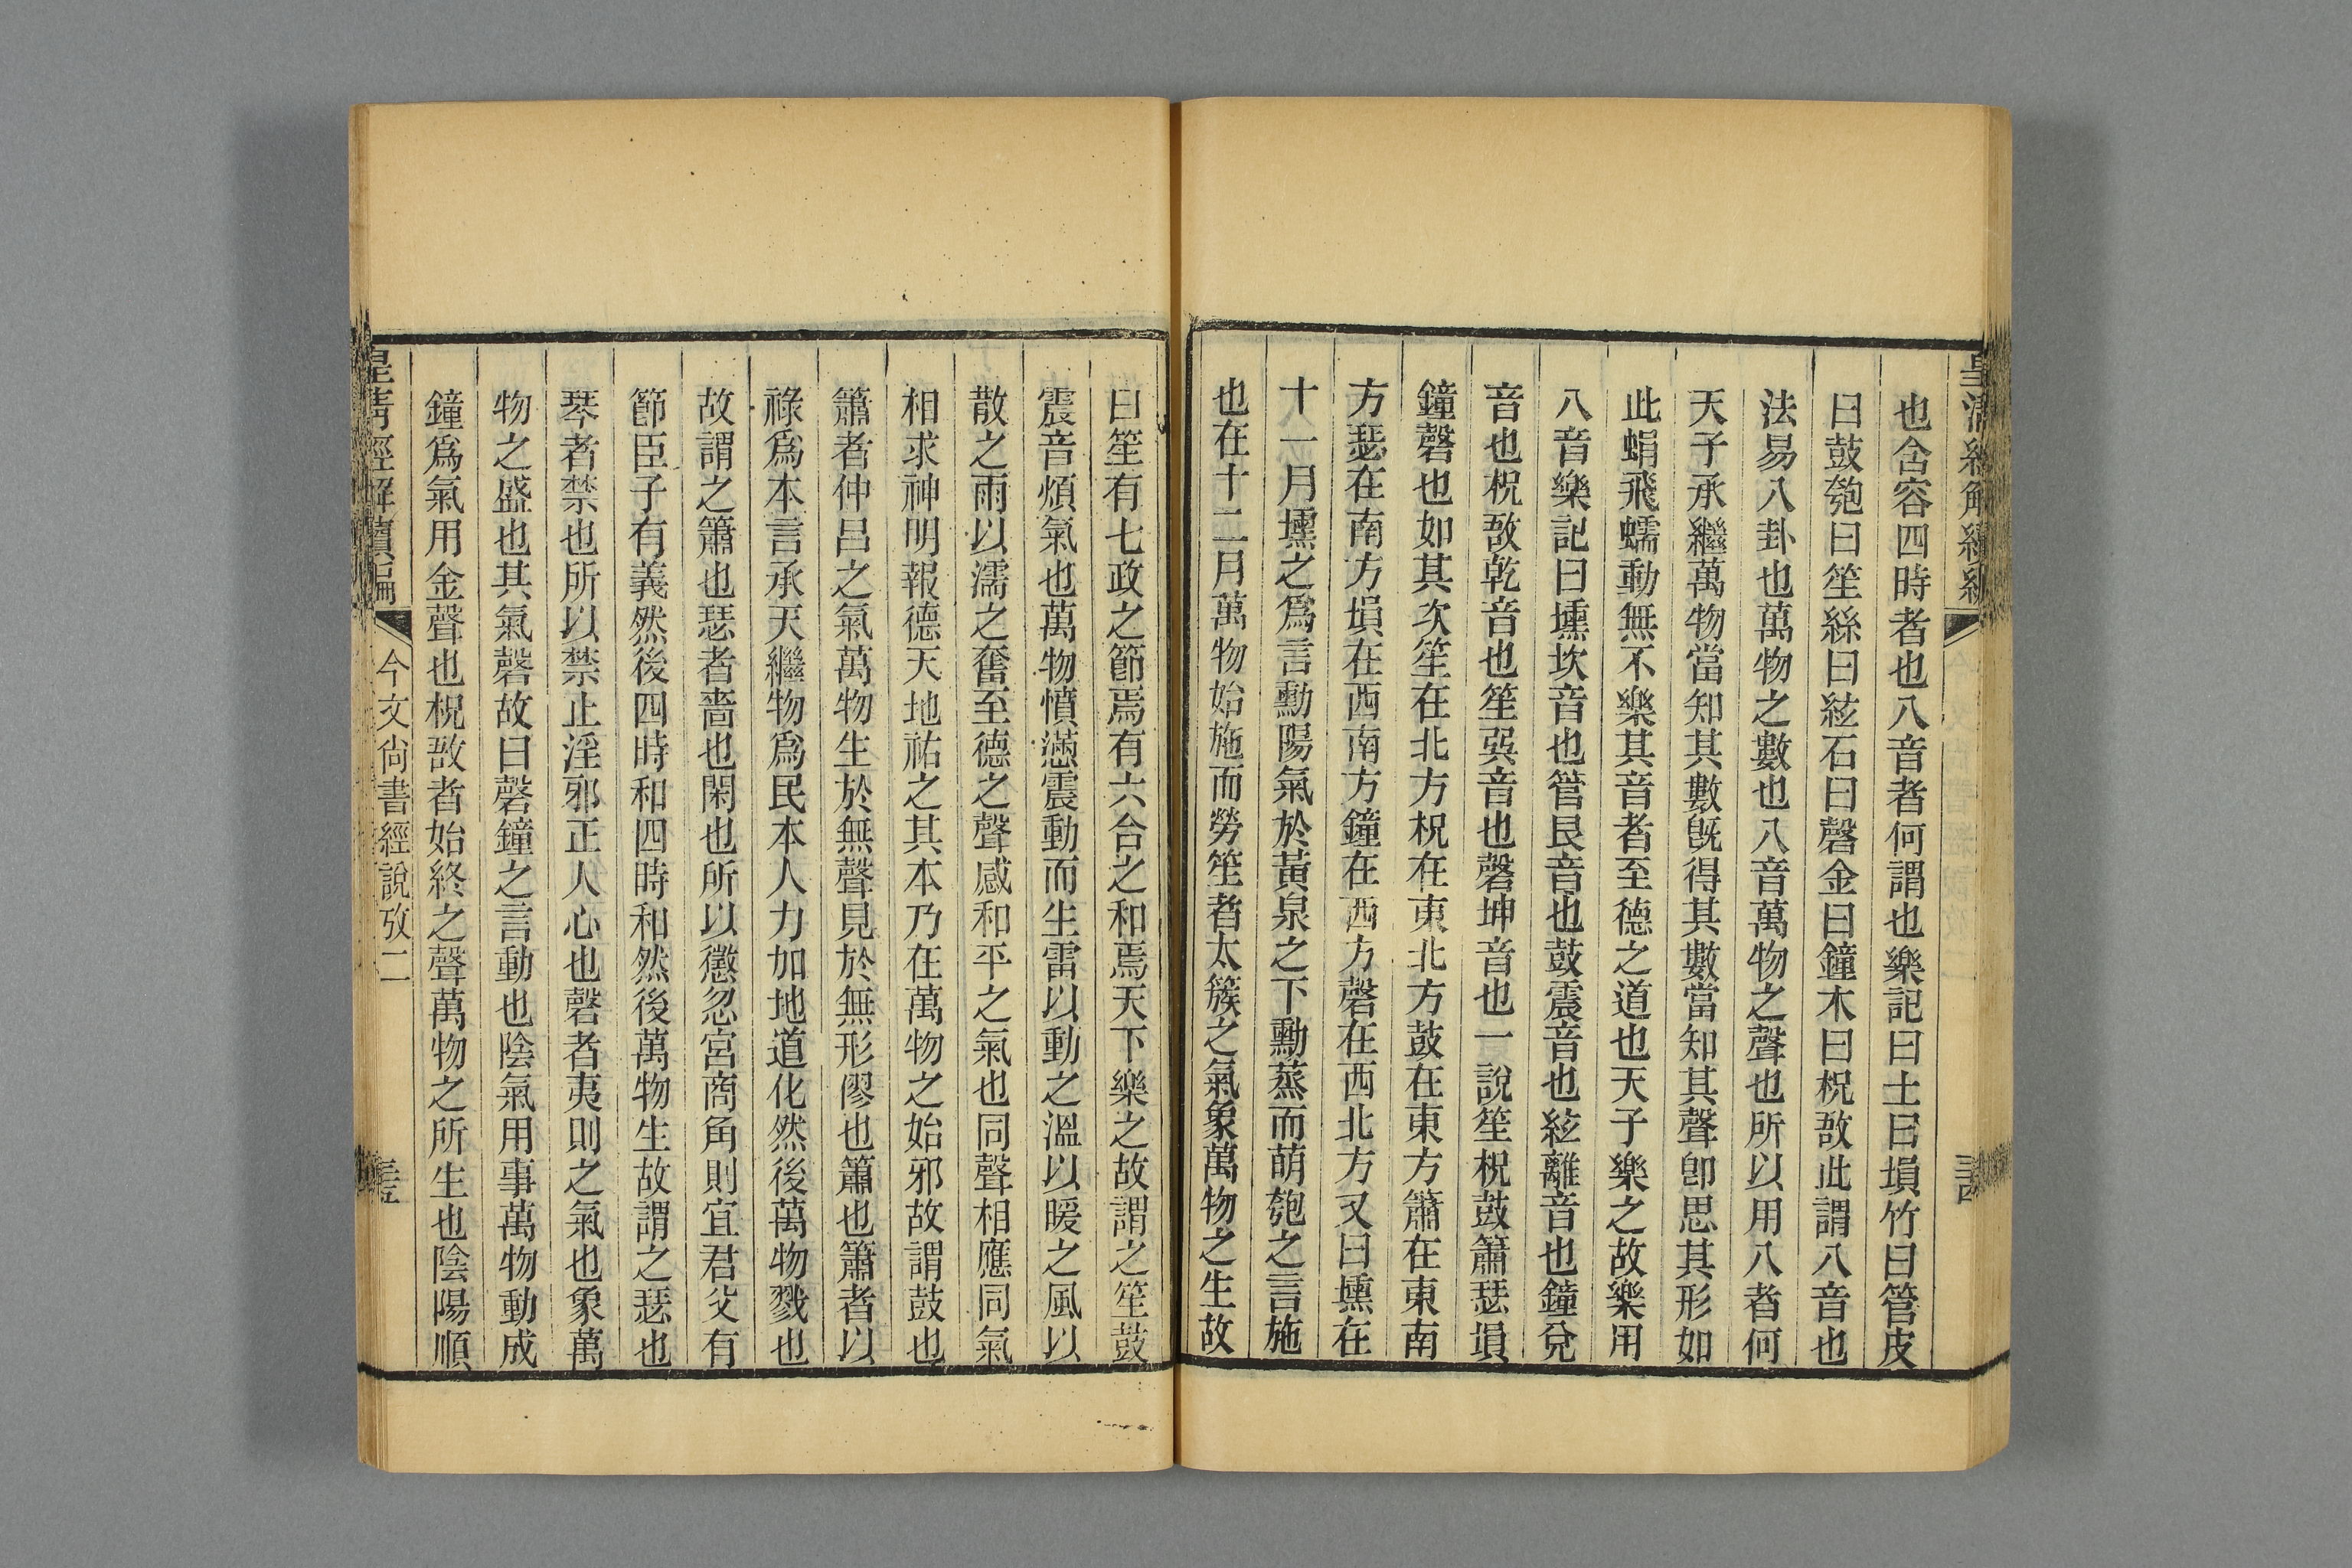 也含容四時者也八音者何謂也樂記曰土曰塤竹曰管皮
曰鼓匏曰笙絲曰絃石曰磬金曰鐘木曰柷敔此謂八音也
法易八卦也萬物之數也八音萬物之聲也所以用八者何
天子承繼萬物當知其數既得其數當知其聲卽思其形如
此蜎飛蠕動無不樂其音者至德之道也天子樂之故樂用
八音樂記曰壎坎音也管艮音也鼓震音也絃離音也鐘兌
音也柷敔乾音也笙巽音也磬坤音也一說笙柷鼓簫瑟塤
鐘磬也如其次笙在北方柷在東北方鼓在東方簫在東南
方瑟在南方塤在西南方鐘在西方磬在西北方又曰壎在
十一月壎之爲言勳陽氣於黃泉之下勳蒸而萌匏之言施
也在十二月萬物始施而勞笙者太簇之氣象萬物之生故
曰笙有七政之節焉有六合之和焉天下樂之故謂之笙鼓
震音煩氣也萬物憤懣震動而生雷以動之溫以暖之風以
散之雨以濡之奮至德之聲感和平之氣也同聲相應同氣
相求神明報德天地祐之其本乃在萬物之始邪故謂鼓也
簫者仲呂之氣萬物生於無聲見於無形僇也簫也簫者以
祿爲本言承天繼物爲民本人力加地道化然後萬物戮也
故謂之簫也瑟者嗇也閑也所以懲忽宮商角則宜君父有
節臣子有義然後四時和四時和然後萬物生故謂之瑟也
琴者禁也所以禁止淫邪正人心也磬者夷則之氣也象萬
物之盛也其氣磬故曰磬鐘之言動也陰氣用事萬物動成
鐘爲氣用金聲也柷敔者始終之聲萬物之所生也陰陽順
皇清經解續編
今文尚書經說攷二